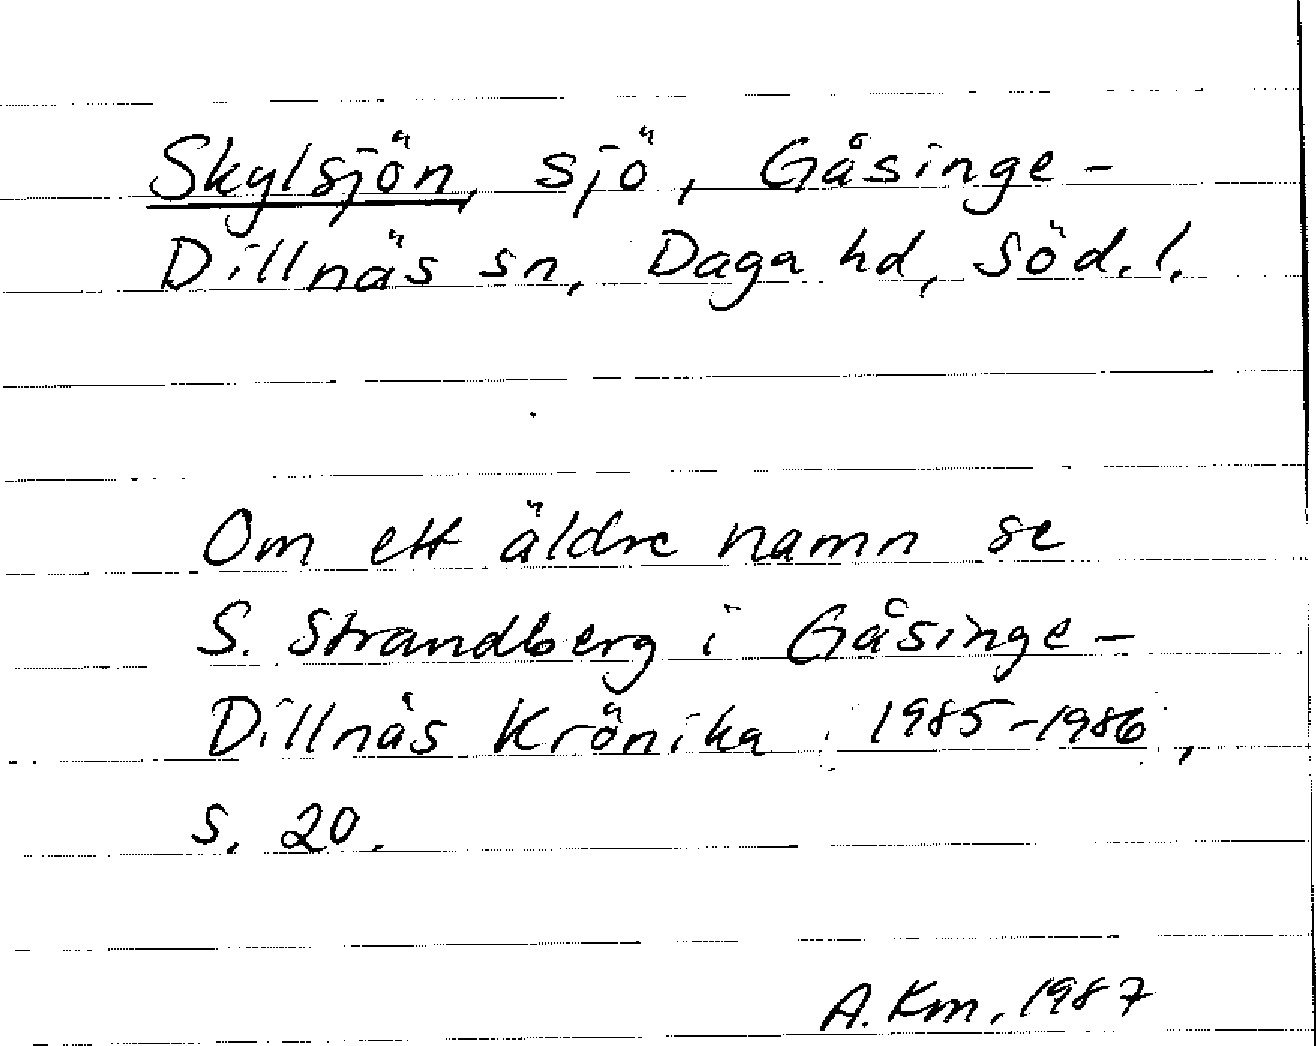 Skylsjön, sjö, Gåsinge-
Dillnäs sn, Daga hd, Söd. l.
Om ett äldre namn se
S. Strandberg i Gåsinge-
Dillnäs Krönika 1985-1986,
s. 20.
A. Km. 1987